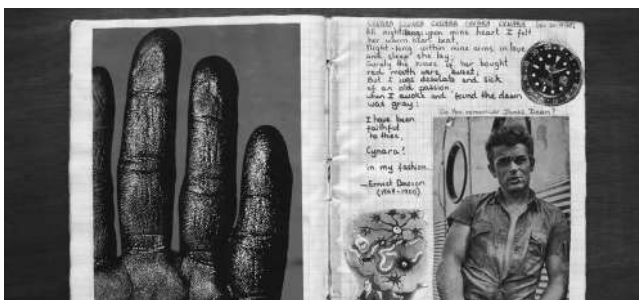 CYNARA CYNARA CYNARA CYNARA CYNARA
All night long upon mine heart I felt
her warm heart beat,
Night-long within mine arms in love
and sleep she lay;
Surely the kisses of her bought
red mouth were sweet;
But I was desolate and sick
of an old passion,
when I awoke and found the dawn
was gray:
Do You remember James Dean?
I have been
faithful
to thee,
Cynara!
in my fashion.
—Ernest Dowson
(1867-1900)